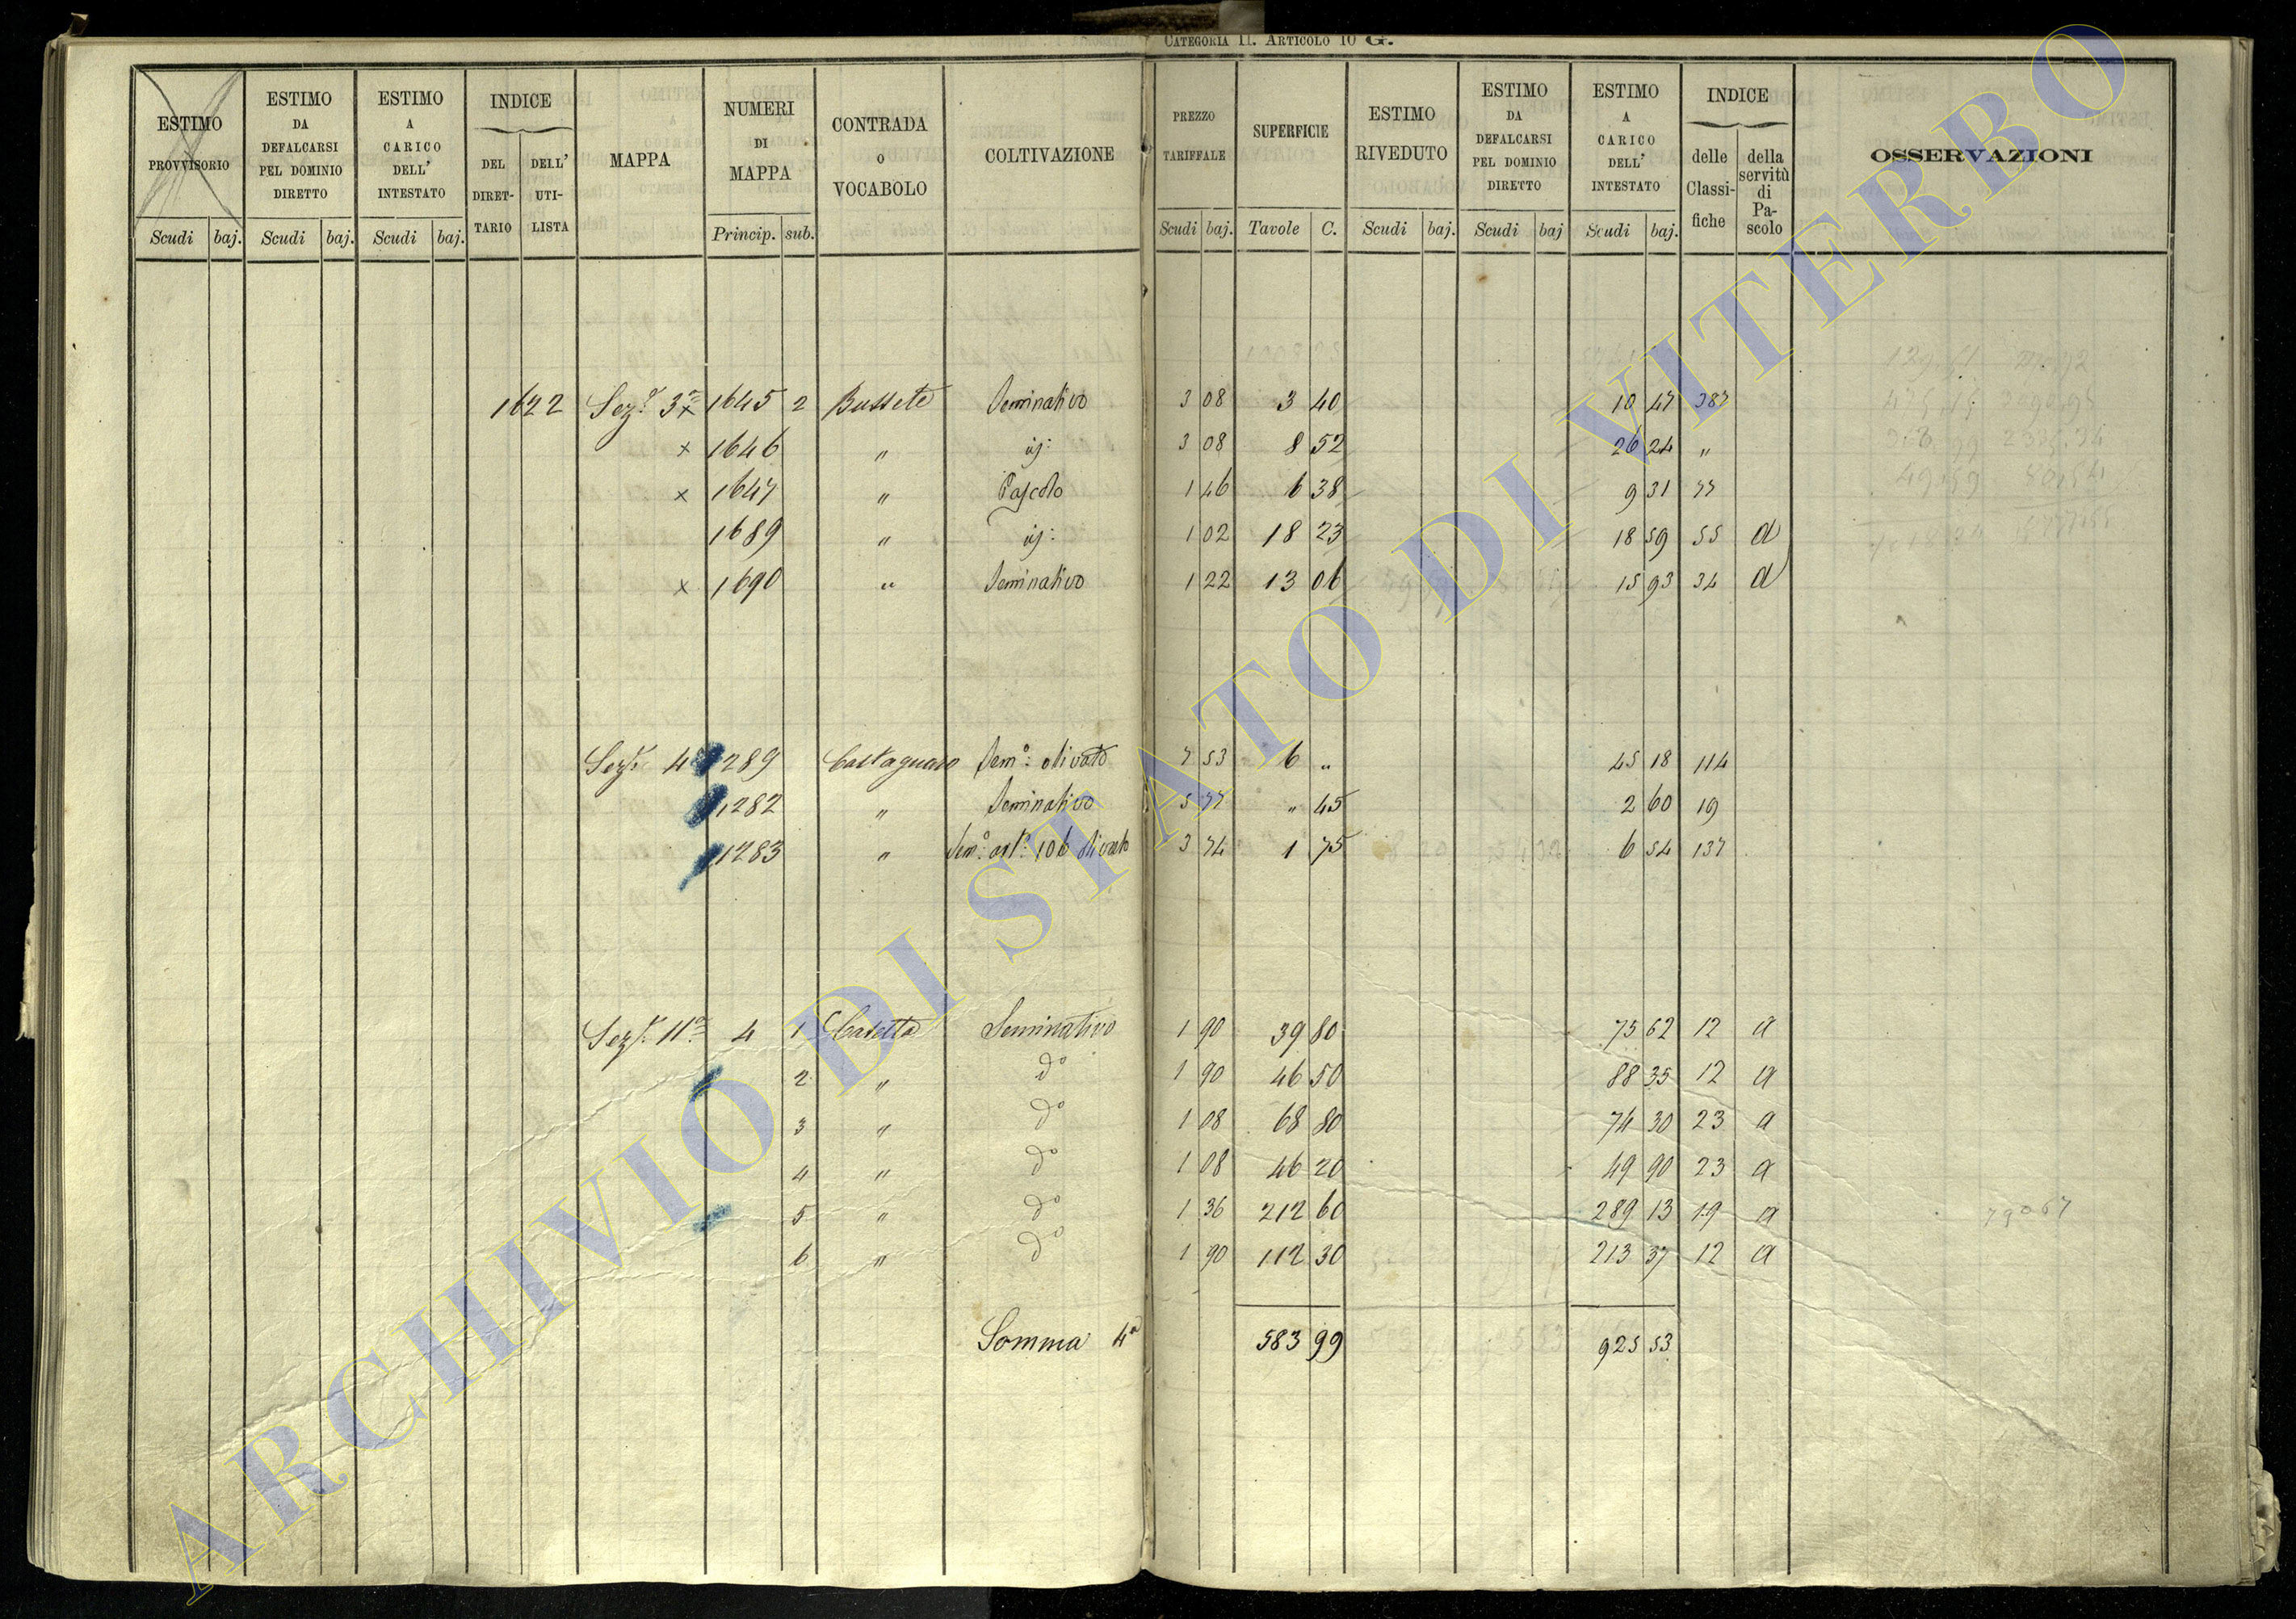 CATEGORIA II. ARTICOLO 10 G.
ESTIMO PROVVISORIO Scudi baj.
ESTIMO DA DEFALCARSI PEL DOMINIO DIRETTO Scudi baj.
ESTIMO A CARICO DELL' INTESTATO Scudi baj.
INDICE DEL DIRET-TARIO DELL' UTI-LISTA
MAPPA
NUMERI DI MAPPA Princip. sub.
CONTRADA O VOCABOLO
COLTIVAZIONE
PREZZO TARIFFALE Scudi baj.
SUPERFICIE Tavole C.
ESTIMO RIVEDUTO Scudi baj.
ESTIMO DA DEFALCARSI PEL DOMINIO DIRETTO Scudi baj
ESTIMO A CARICO DELL' INTESTATO Scudi baj.
INDICE delle Classi-fiche della servitù di Pa-scolo
OSSERVAZIONI
1622 Sez.e 3a x 1645 2 Bussete Seminativo 3 08 3 40 10 47 387
x 1646 " id: 3 08 8 52 26 24 "
x 1647 " Pascolo 1 46 6 38 9 31 77
1689 " id: 1 02 18 23 18 59 55 a
x 1690 " Seminativo 1 22 13 06 15 93 34 a
Sez.e 4a 1289 Castagnaro Sem.o olivato 7 53 6 " 45 18 114
1282 " Seminativo 5 77 " 45 2 60 19
1283 " Sem.o ast.o 106 olivato 3 74 1 75 6 54 137
Sez.e 11a 4 1 Casetta Seminativo 1 90 39 80 75 62 12 a
2 " do 1 90 46 50 88 35 12 a
3 " do 1 08 68 80 74 30 23 a
4 " do 1 08 46 20 49 90 23 a
5 " do 1 36 212 60 289 13 19 a
79067
6 " do 1 90 112 30 213 37 12 a
Somma 4a 583 99 925 53
ARCHIVIO DI STATO DI VITERBO